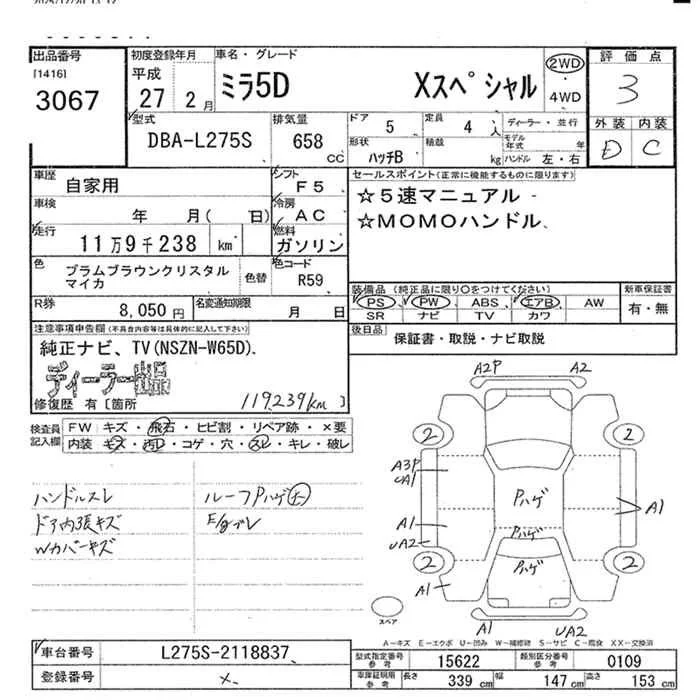 出品番号
[1416]
3067
初度登録年月
平成
27 2月
車名・グレード
ミラ5D Xスペシャル
2WD
4WD
評価点
3
外装 内装
D C
型式
DBA-L275S
排気量
658 CC
ドア 5
定員 4 人
形状 ハッチB
積載 kg
ディーラー・並行
モデル年式 年
ハンドル 左・右
車歴 自家用
シフト F5
車検 年 月( 日)
冷房 AC
走行 11万9千238 km
燃料 ガソリン
色 プラムブラウンクリスタルマイカ
色替
色コード R59
R券 8,050円
名変通知期限 月 日
セールスポイント(正常に機能するものに限ります)
☆5速マニュアル
☆MOMOハンドル
装備品(純正品に限り○をつけてください)
PS PW ABS エアB AW
SR ナビ TV カワ
新車保証書
有・無
後日品 保証書・取説・ナビ取説
注意事項申告欄(不具合内容等は具体的に記入して下さい)
純正ナビ、TV(NSZN-W65D)
ディーラー出品
修復歴 有[箇所 ]
119,239km
検査員記入欄
FW キズ・飛石・ヒビ割・リペア跡・×要
内装 キズ・汚レ・コゲ・穴・スレ・キレ・破レ
ハンドルスレ
ドア内張キズ
Wカバーキズ
ルーフPハゲ大
E/gブレ
A2P A2
2 2
A3P
UA1
Pハゲ
A1
A1
UA2
Pハゲ
Pハゲ
2 2
A1
スペア
A1 UA2
A-キズ E-エクボ U-凹み W-補修跡 S-サビ C-腐食 XX-交換済
車台番号 L275S-2118837
登録番号
型式指定番号 参考 15622
類別区分番号 参考 0109
車庫証明用 参考 長さ 339 cm 幅 147 cm 高さ 153 cm